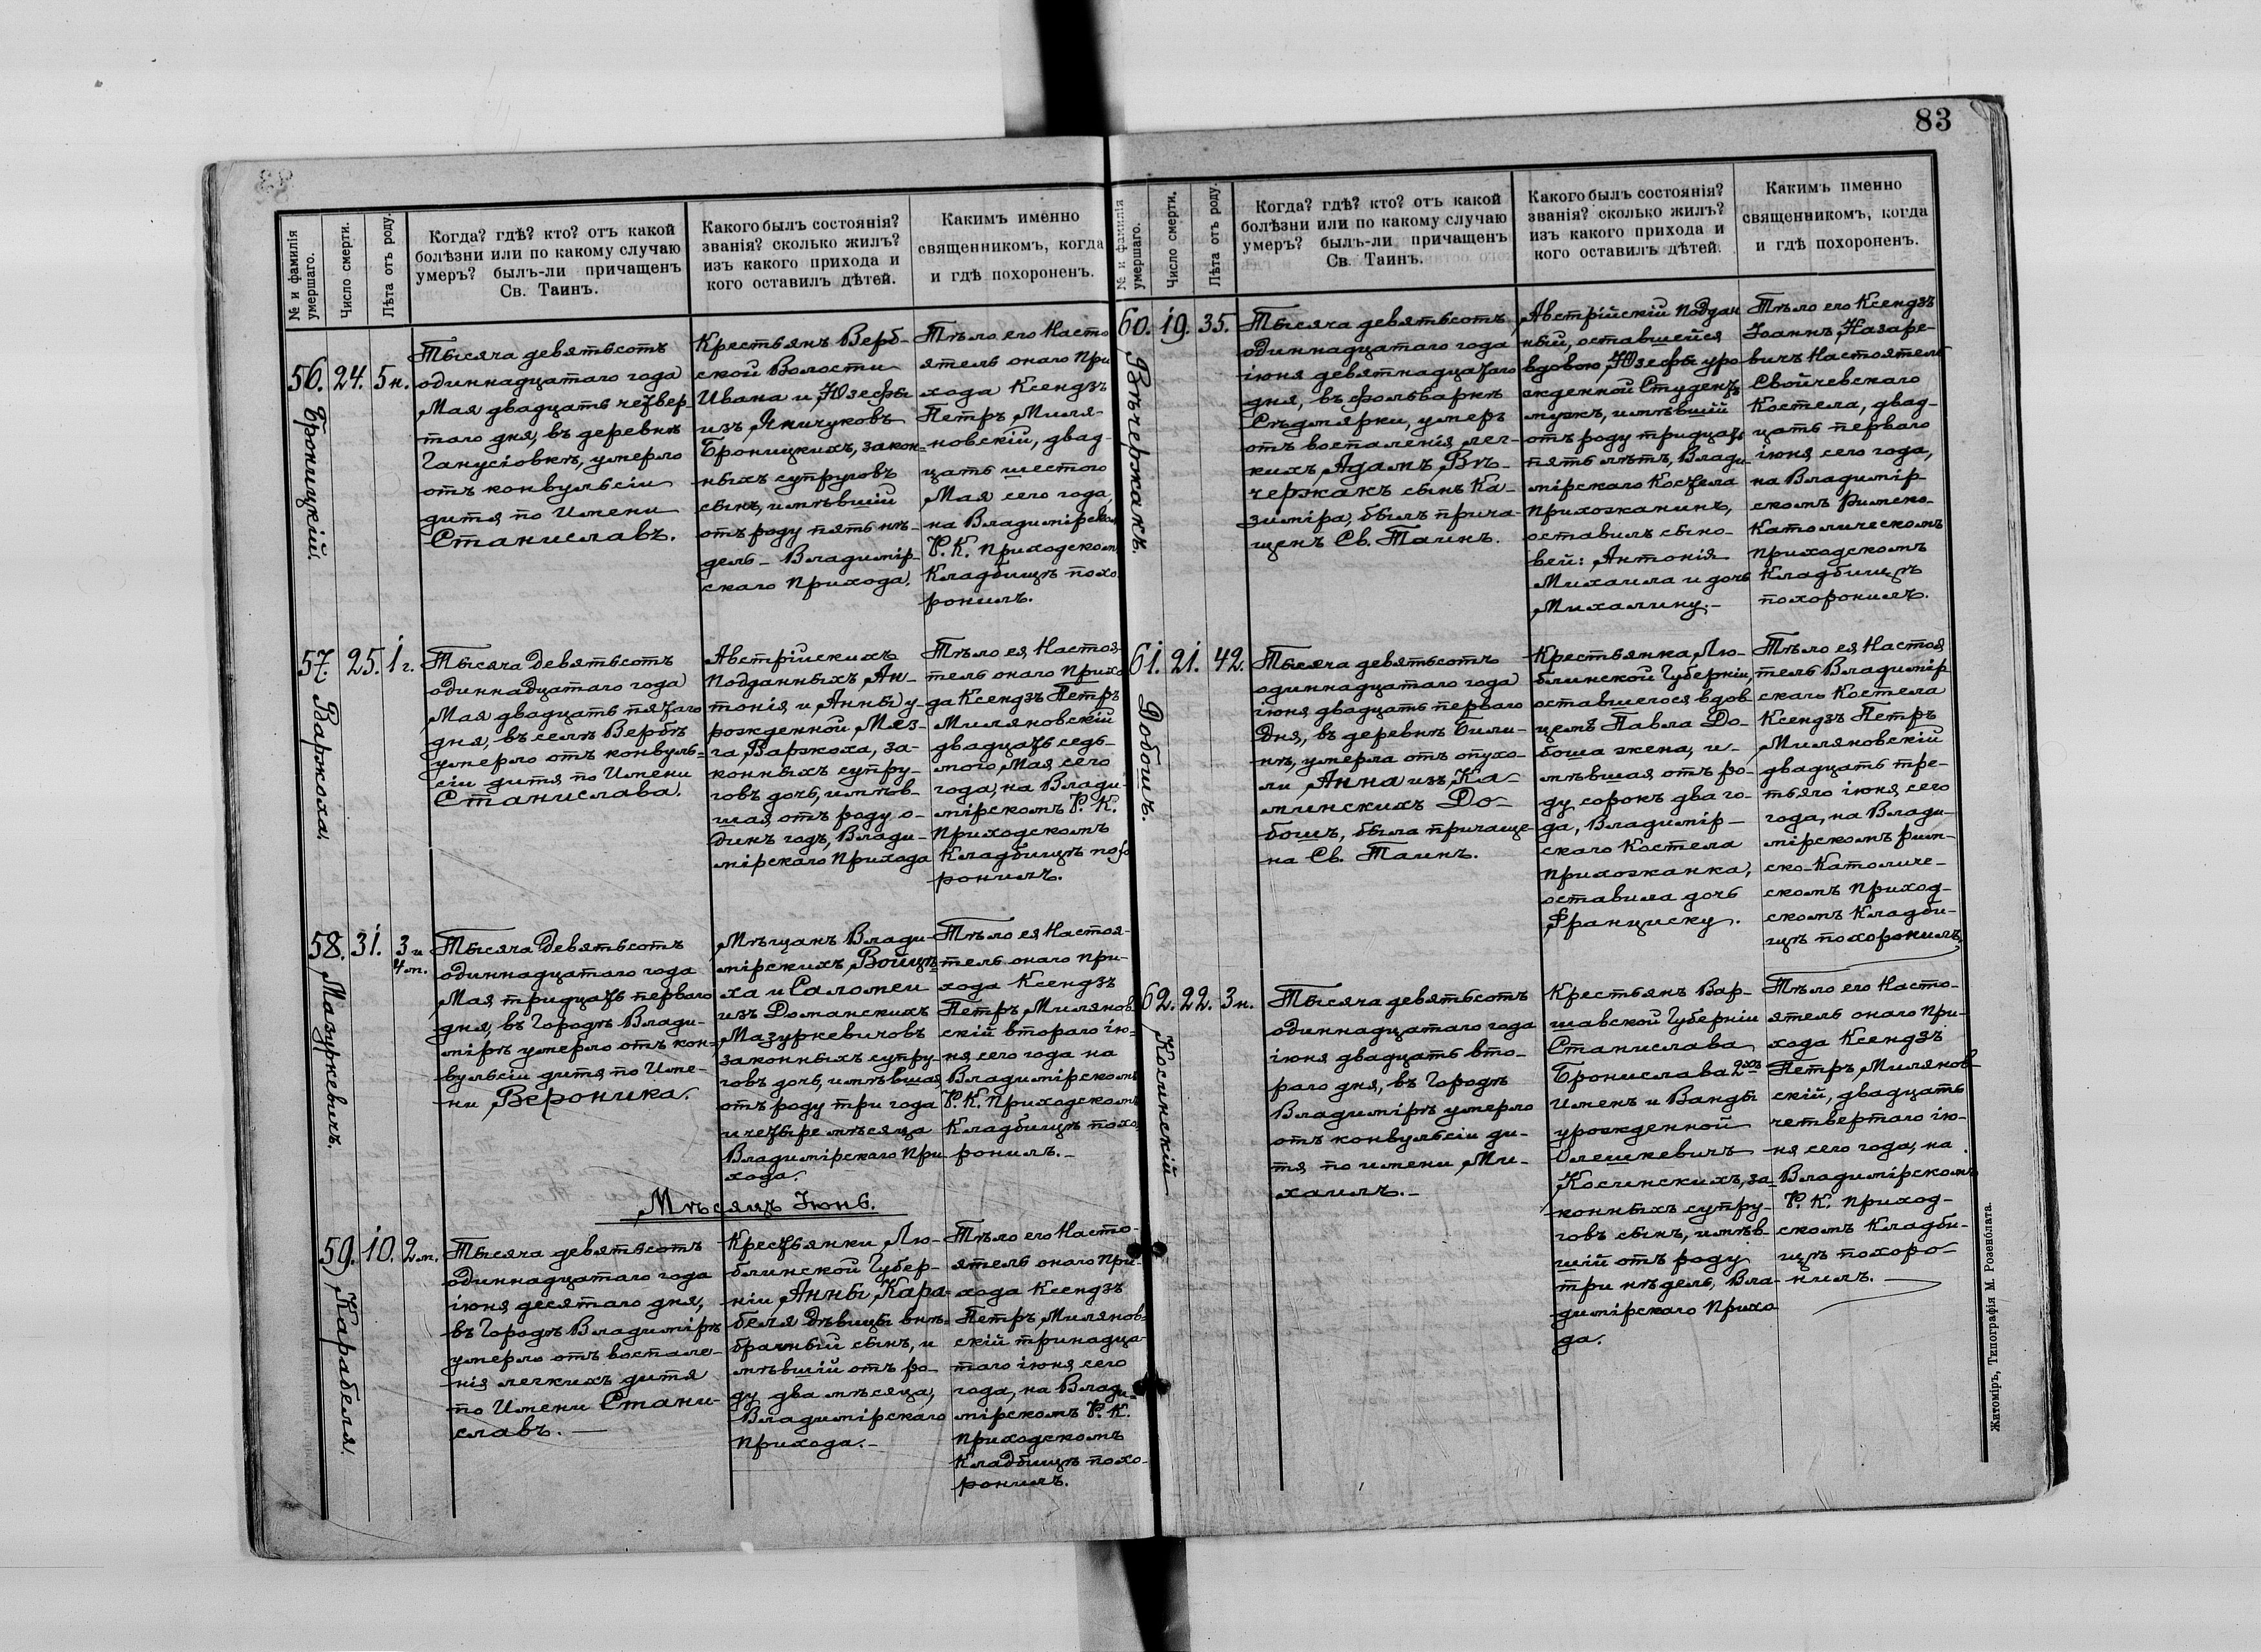 83
№ и фамилія
умершаго.
Число смерти.
Лѣта отъ роду.
Когда? гдѣ? кто? отъ какой
болѣзни или по какому случаю
умеръ? былъ-ли причащенъ
Св. Таинъ.
Какого былъ состоянія?
званія? сколько жилъ?
изъ какого прихода и
кого оставилъ дѣтей.
Какимъ именно
священникомъ, когда
и гдѣ похороненъ.
56.
Броницкій.
24.
5 н.
Тысяча девятьсотъ
одиннадцатаго года
Мая двадцать четвер-
таго дня, въ деревнѣ
Ганусіовкѣ, умерло
отъ конвульсіи
дитя по Имени
Станиславъ.
Крестьянъ Верб-
ской Волости
Ивана и Юзефы
изъ Яничуковъ
Броницкихъ, закон-
ныхъ супруговъ
сынъ, имѣвшій
отъ роду пять не-
дель - Владимір-
скаго Прихода.
Тѣло его Насто
ятель онаго При
хода Ксендзъ
Петръ Миля-
новскій, двад-
цать шестого
Мая сего года,
на Владимірском
Р. К. Приходском
Кладбищѣ похо
ронилъ.
57.
Варжоха.
25.
1 г.
Тысяча Девятьсотъ
одиннадцатаго года
Мая двадцать пятаго
дня, въ селѣ Вербѣ
умерло отъ конвуль-
сіи дитя по Имени
Станислава.
Австрійскихъ
Подданныхъ Ан-
тонія и Анны у-
рожденной Мяз-
га, Варжоха, за-
конныхъ супру-
говъ дочь, имѣв-
шая отъ роду о-
динъ годъ, Влади-
мірскаго Прихода
Тѣло ея Настоя
тель онаго Прихо
да Ксендзъ Петръ
Миляновскій
двадцать седь-
мого Мая сего
года, на Влади-
мірскомъ Р. К.
Приходскомъ
Кладбищѣ похо
ронилъ.
58.
Мазуркевичъ.
31.
3 и
4 м.
Тысяча Девятьсотъ
одиннадцатаго года
Мая тридцать перваго
дня, въ Городѣ Влади-
мірѣ умерло отъ кон-
вульсіи дитя по Име-
ни Вероника.
Мѣщанъ Влади-
мірскихъ Войцѣ-
ха и Саломеи
изъ Доманскихъ
Мазуркевичовъ
законныхъ супру-
говъ дочь, имѣвшая
отъ роду три года
и четыре мѣсяца
Владимірскаго При-
хода.
Тѣло ея Настоя-
тель онаго При-
хода Ксендзъ
Петръ Милянов-
скій втораго ію-
ня сего года на
Владимірскомъ
Р. К. Приходскомъ
Кладбищѣ похо
ронилъ.-
Мѣсяцъ Іюнь.
59.
Карабеля.
10.
2 м.
Тысяча девятьсотъ
одиннадцатаго года
іюня десятаго дня,
въ Городѣ Владимірѣ
умерло отъ воспале-
нія легкихъ дитя
по Имени Стани-
славъ.-
Крестьянки Лю-
блинской Губер-
ніи Анны Кара-
беля дѣвицы внѣ-
брачный сынъ, и
мѣвшій отъ ро-
ду два мѣсяца,
Владимірскаго
Прихода.-
Тѣло его Насто-
ятель онаго При-
хода Ксендзъ
Петръ Милянов-
скій тринадца-
таго іюня сего
года, на Влади-
мірскомъ Р. К.
Приходскомъ
Кладбищѣ похо-
ронилъ.
№ и фамилія
умершаго.
Число смерти.
Лѣта отъ роду.
Когда? гдѣ? кто? отъ какой
болѣзни или по какому случаю
умеръ? былъ-ли причащенъ
Св. Таинъ.
Какого былъ состоянія?
званія? сколько жилъ?
изъ какого прихода и
кого оставилъ дѣтей.
Какимъ именно
священникомъ, когда
и гдѣ похороненъ.
60.
Вѣчержакъ.
19.
35.
Тысяча девятьсотъ
одиннадцатаго года
іюня девятнадцатаго
дня, въ фольваркѣ
Съдмярки, умеръ
отъ воспаленія лег-
кихъ Адамъ Вѣ-
чержакъ сынъ Ка-
зиміра, былъ прича-
щенъ Св. Таинъ.
Австрійскій Поддан
ный, оставшейся
вдовою Юзефы уро
жденной Студентъ
мужъ, имѣвшій
отъ роду тридцать
пять лѣтъ, Влади-
мірскаго Костела
Прихожанинъ,
оставилъ сыно-
вей: Антонія
Михаила и дочь
Михалину.-
Тѣло его Ксендзъ
Іоаннъ Назаре-
вичъ Настоятель
Свойчевскаго
Костела, двад-
цать перваго
іюня сего года,
на Владимір-
скомъ Римско-
Католическомъ
Приходскомъ
Кладбищѣ
похоронилъ.
61.
Добошъ.
21.
42.
Тысяча девятьсотъ
одиннадцатаго года
іюня двадцать перваго
Дня, въ деревнѣ Били-
нѣ, умерла отъ опухо-
ли Анна изъ Ка-
минскихъ До-
бошъ, была причаще-
на Св. Таинъ.
Крестьянка Лю-
блинской Губерніи,
оставшегося вдов
цемъ Павла До-
боша жена, и-
мѣвшая отъ ро-
ду сорокъ два го-
да, Владимір-
скаго Костела
Прихожанка,
оставила дочь
Франциску.
Тѣло ея Настоя
тель Владимір
скаго Костела
Ксендзъ Петръ
Миляновскій
двадцать тре-
тьяго іюня сего
года, на Влади-
мірскомъ Рим-
ско-Католиче-
скомъ Приход-
скомъ Кладби-
щѣ похоронилъ.
62.
Косинскій
22.
3 н.
Тысяча девятьсотъ
одиннадцатаго года
іюня двадцать вто-
раго дня, въ Городѣ
Владимірѣ умерло
отъ конвульсіи ди-
тя по имени Ми-
хаилъ.-
Крестьянъ Вар-
шавской Губерніи
Станислава
Бронислава 2хъ
Именъ и Ванды
урожденной
Олешкевичъ
Косинскихъ, за-
конныхъ супру-
говъ сынъ, имѣв-
шій отъ роду
три недель, Вла-
димірскаго Прихо
да.
Тѣло его Насто-
ятель онаго При-
хода Ксендзъ
Петръ Милянов-
скій, двадцать
четвертаго ію-
ня сего года, на
Владимірскомъ
Р. К. Приход-
скомъ Кладби-
щѣ похоро-
нилъ.-
Житоміръ, Типографія М. Розенблата.